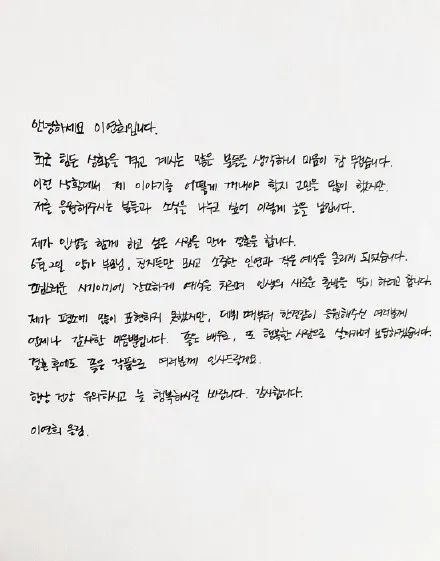 안녕하세요 이연희입니다.
최근 힘든 상황을 겪고 계시는 많은 분들을 생각하니 마음이 참 무겁습니다.
이런 상황에서 제 이야기를 어떻게 꺼내야 할지 고민을 많이 했지만,
저를 응원해주시는 분들과 소식을 나누고 싶어 이렇게 글을 남깁니다.
제가 인생을 함께 하고 싶은 사람을 만나 결혼을 합니다.
6월 2일 양가 부모님, 친지들만 모시고 소중한 인연과 작은 예식을 올리게 되었습니다.
조심스러운 시기이기에 간소하게 예식을 치르며 인생의 새로운 출발을 딛으려고 합니다.
제가 평소에 많이 표현하지 못했지만, 데뷔 때부터 한결같이 응원해주신 여러분께
언제나 감사한 마음뿐입니다. 좋은 배우로, 또 행복한 사람으로 살아가며 보답하겠습니다.
결혼 후에도 좋은 작품으로 여러분께 인사드릴게요.
항상 건강 유의하시고 늘 행복하시길 바랍니다. 감사합니다.
이연희 올림.